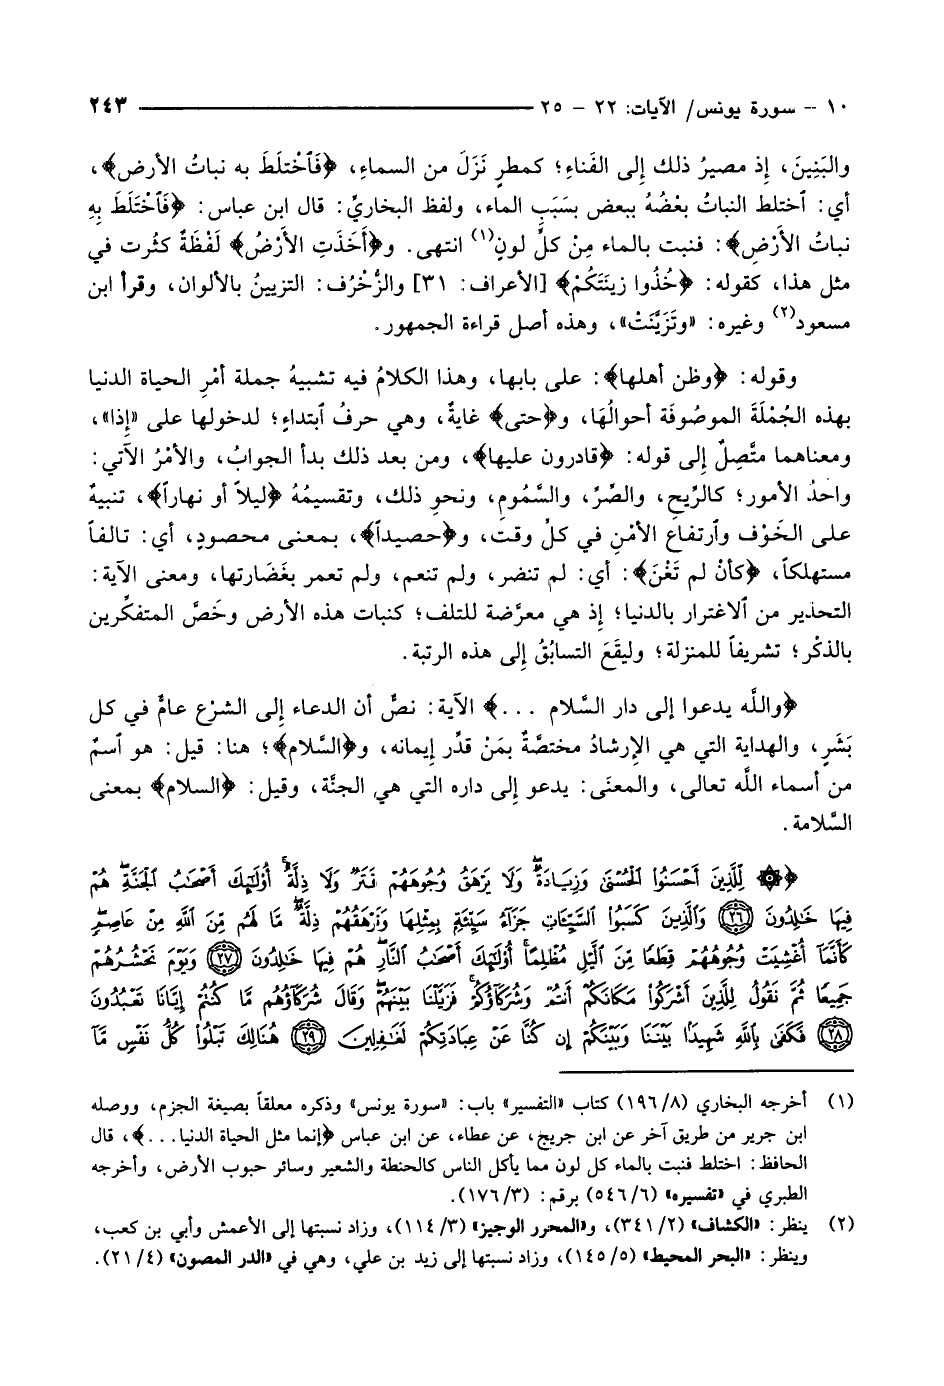 ١٠ -- سورة يونس/ الآيات: ٢٢ - ٢٥ ٢٤٣
والبَنِينَ، إِذ مصيرُ ذلك إِلى الفَناءِ؛ كمطرٍ نَزَلَ من السماءِ، ﴿فَٱخْتلَطَ به نباتُ الأرض﴾،
أي: ٱختلط النباتُ بعْضُهُ ببعض بسَبَبِ الماء، ولفظ البخاريِّ: قال ابن عباس: ﴿فَٱخْتَلَطَ بِهِ
نباتُ الأَرْضِ﴾: فنبت بالماء مِنْ كلِّ لونٍ(١) انتهى. و﴿أَخَذَتِ الأَرْضُ﴾ لَفْظَةٌ كثُرت في
مثل هذا، كقوله: ﴿خُذُوا زِينَتَكُمْ﴾ [الأعراف: ٣١] والزُّخْرُف: التزيينُ بالألوان، وقرأ ابن
مسعود(٢) وغيره: «وتَزَيَّنَتْ»، وهذه أصل قراءة الجمهور.
وقوله: ﴿وظن أهلها﴾: على بابها، وهذا الكلامُ فيه تشبيهُ جملة أمْرِ الحياة الدنيا
بهذه الجُمْلَةَ الموصُوفَة أحوالُهَا، و﴿حتى﴾ غايةٌ، وهي حرفُ ٱبتداءٍ؛ لدخولها على «إِذا»،
ومعناهما متَّصِلٌ إِلى قوله: ﴿قادرون عليها﴾، ومن بعد ذلك بدأ الجوابُ، والأمْرُ الآتي:
واحدُ الأمور؛ كالرِّيحِ، والصِّرِّ، والسَّمُومِ، ونحوِ ذلك، وتقسيمُهُ ﴿ليلاً أو نهاراً﴾، تنبيهٌ
على الخَوْف وٱرتفاعِ الأمْنِ في كلِّ وقت، و﴿حصيداً﴾، بمعنى محصودٍ، أي: تالفاً
مستهلكاً، ﴿كأنْ لم تَغْنَ﴾: أي: لم تنضر، ولم تنعم، ولم تعمر بغَضَارتها، ومعنى الآية:
التحذير من ٱلاغترار بالدنيا؛ إِذ هي معرَّضة للتلف؛ كنبات هذه الأرض وخَصَّ المتفكِّرين
بالذكْر؛ تشريفاً للمنزلة؛ وليقَعَ التسابُقُ إِلى هذه الرتبة.
﴿واللَّه يدعوا إلى دار السَّلام ...﴾ الآية: نصٌّ أن الدعاء إِلى الشرْع عامٌّ في كل
بَشَرٍ، والهداية التي هي الإِرشادُ مختصَّةٌ بمَنْ قدِّر إِيمانه، و﴿السَّلام﴾؛ هنا: قيل: هو ٱسمٌ
من أسماء اللَّه تعالى، والمعنَى: يدعو إِلى داره التي هي الجنَّة، وقيل: ﴿السلام﴾ بمعنى
السَّلامة.
﴿۞ لِّلَّذِينَ أَحْسَنُوا۟ ٱلْحُسْنَىٰ وَزِيَادَةٌ ۖ وَلَا يَرْهَقُ وُجُوهَهُمْ قَتَرٌ وَلَا ذِلَّةٌ ۚ أُو۟لَٰٓئِكَ أَصْحَٰبُ ٱلْجَنَّةِ ۖ هُمْ
فِيهَا خَٰلِدُونَ ﴿٢٦﴾ وَٱلَّذِينَ كَسَبُوا۟ ٱلسَّيِّـَٔاتِ جَزَآءُ سَيِّئَةٍۭ بِمِثْلِهَا وَتَرْهَقُهُمْ ذِلَّةٌ ۖ مَّا لَهُم مِّنَ ٱللَّهِ مِنْ عَاصِمٍ ۖ
كَأَنَّمَآ أُغْشِيَتْ وُجُوهُهُمْ قِطَعًا مِّنَ ٱلَّيْلِ مُظْلِمًا ۚ أُو۟لَٰٓئِكَ أَصْحَٰبُ ٱلنَّارِ ۖ هُمْ فِيهَا خَٰلِدُونَ ﴿٢٧﴾ وَيَوْمَ نَحْشُرُهُمْ
جَمِيعًا ثُمَّ نَقُولُ لِلَّذِينَ أَشْرَكُوا۟ مَكَانَكُمْ أَنتُمْ وَشُرَكَآؤُكُمْ ۚ فَزَيَّلْنَا بَيْنَهُمْ ۖ وَقَالَ شُرَكَآؤُهُم مَّا كُنتُمْ إِيَّانَا تَعْبُدُونَ
﴿٢٨﴾ فَكَفَىٰ بِٱللَّهِ شَهِيدًۢا بَيْنَنَا وَبَيْنَكُمْ إِن كُنَّا عَنْ عِبَادَتِكُمْ لَغَٰفِلِينَ ﴿٢٩﴾ هُنَالِكَ تَبْلُوا۟ كُلُّ نَفْسٍ مَّآ
(١) أخرجه البخاري (١٩٦/٨) كتاب «التفسير» باب: «سورة يونس» وذكره معلقاً بصيغة الجزم، ووصله
ابن جرير من طريق آخر عن ابن جريج، عن عطاء، عن ابن عباس ﴿إنما مثل الحياة الدنيا...﴾، قال
الحافظ: اختلط فنبت بالماء كل لون مما يأكل الناس كالحنطة والشعير وسائر حبوب الأرض، وأخرجه
الطبري في «تفسيره» (٥٤٦/٦) برقم: (١٧٦/٣).
(٢) ينظر: «الكشاف» (٣٤١/٢)، و«المحرر الوجيز» (١١٤/٣)، وزاد نسبتها إلى الأعمش وأبي بن كعب،
وينظر: «البحر المحيط» (١٤٥/٥)، وزاد نسبتها إلى زيد بن علي، وهي في «الدر المصون» (٢١/٤).